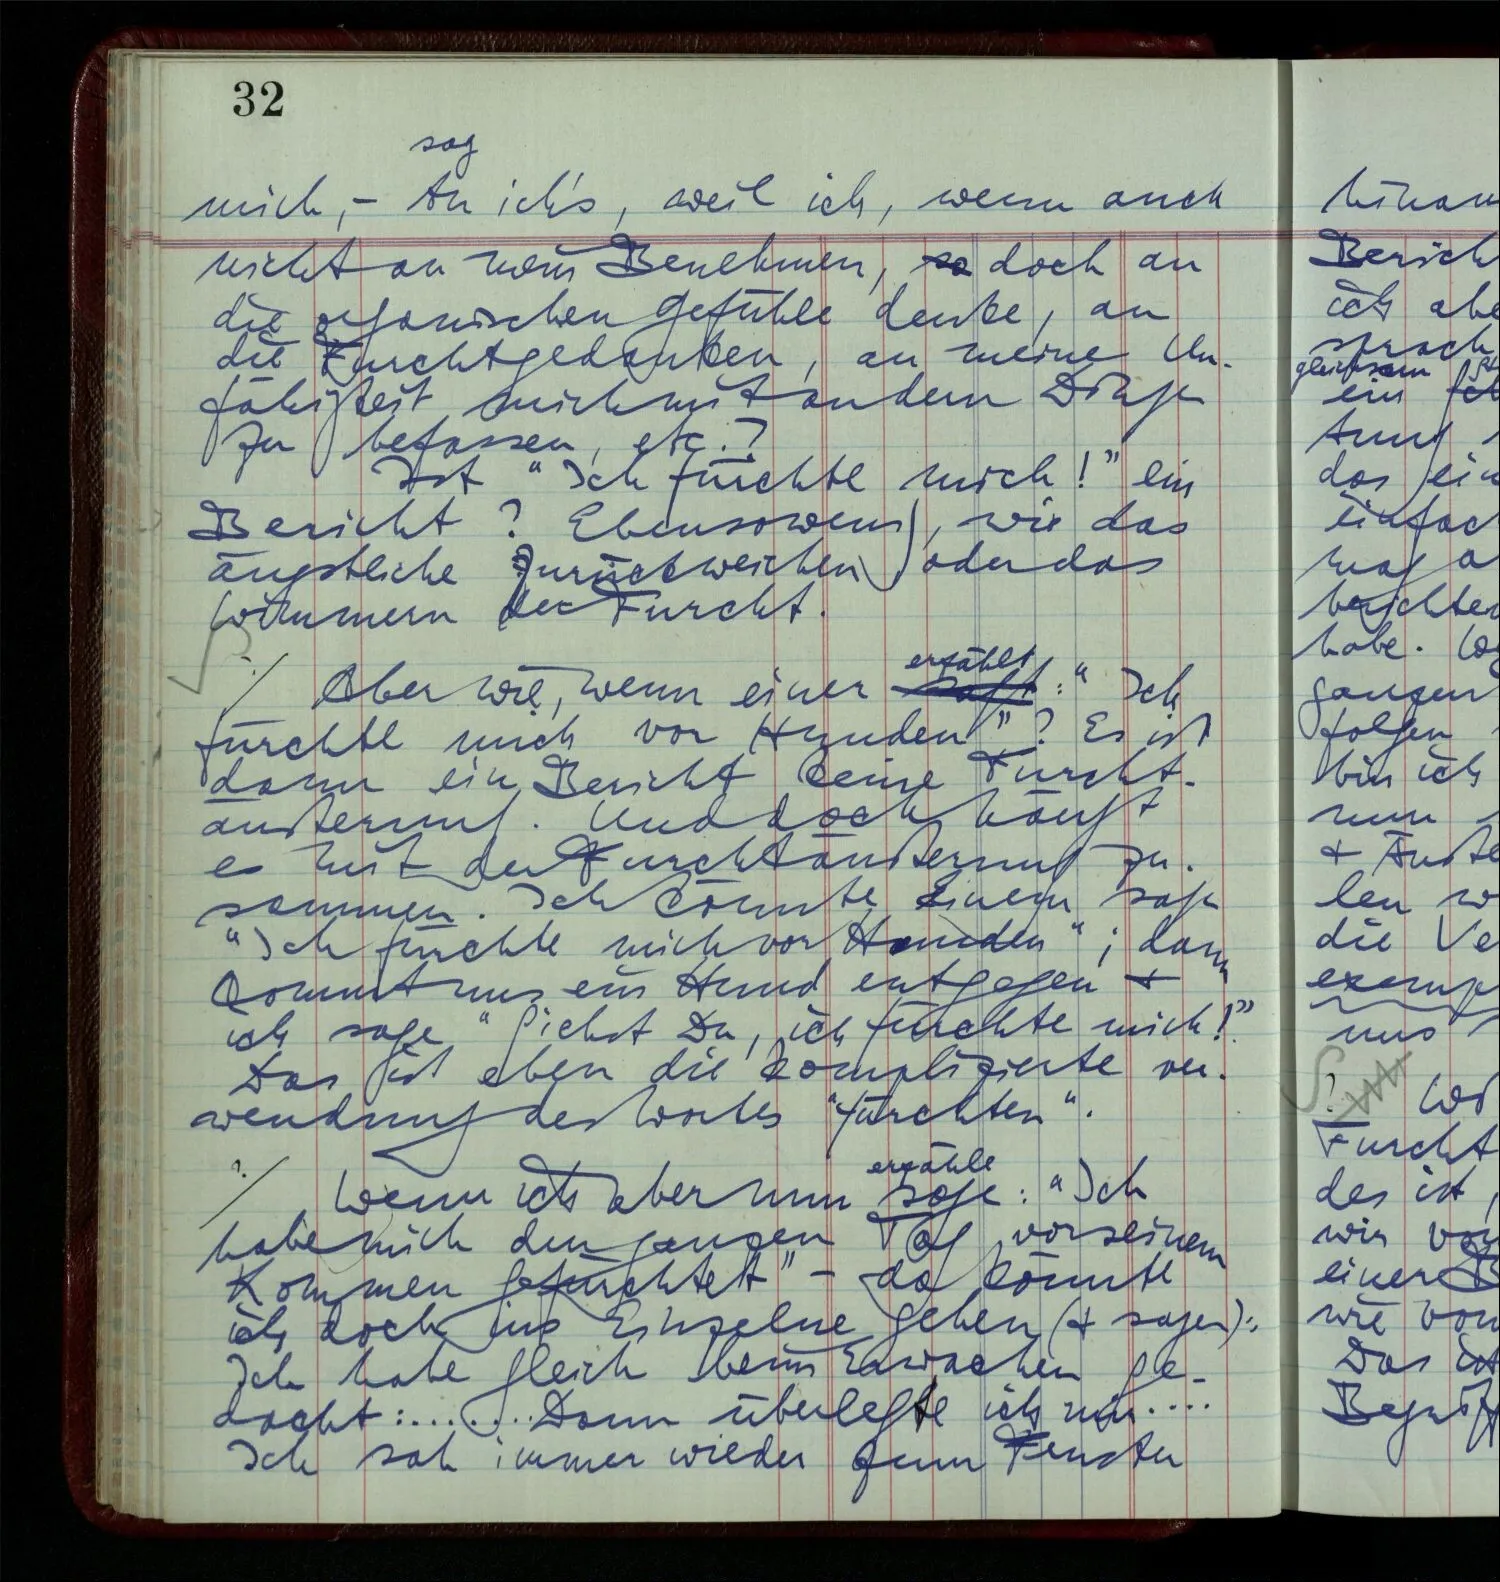 32
sag
mich, – tu ich's, weil ich, wenn auch
nicht an mein Benehmen, so doch an
die organischen Gefühle denke, an
die Furchtgedanken, an meine Un-
fähigkeit mich mit andern Dingen
zu befassen, etc.?
Ist “Ich fürchte mich!” ein
Bericht? Ebensowenig, wie das
ängstliche Zurückweichen oder das
Wimmern der Furcht.
erzählt
?/ Aber wie, wenn einer sagt: “Ich
fürchte mich vor Hunden”? Es ist
dann ein Bericht keine Furcht-
äußerung. Und doch hängt
es mit der Furchtäußerung zu-
sammen. Ich könnte Einem sagen
“Ich fürchte mich vor Hunden“; dann
kommt uns ein Hund entgegen +
ich sage “Siehst Du, ich fürchte mich!”
Das ist eben die komplizierte Ver-
wendung des Wortes “fürchten“.
erzähle
?/ Wenn ich aber nun sage: “Ich
habe mich den ganzen Tag vor seinem
Kommen gefürchtet” – da könnte
ich doch ins Einzelne gehen (+ sagen):
Ich habe gleich beim Erwachen ge-
dacht:....... Dann überlegte ich mir....
Ich sah immer wieder zum Fenster
Berich
ich abe
sprach
gleichsam
ein
tung
das ein
einfach
mag
berichten
habe.
ganzen
folgen
bin ich
nun
+ Äuße
len
die Ve
exemp
uns
?
Furcht
des ist,
wir
einer B
wie von
Das ist
Begriff